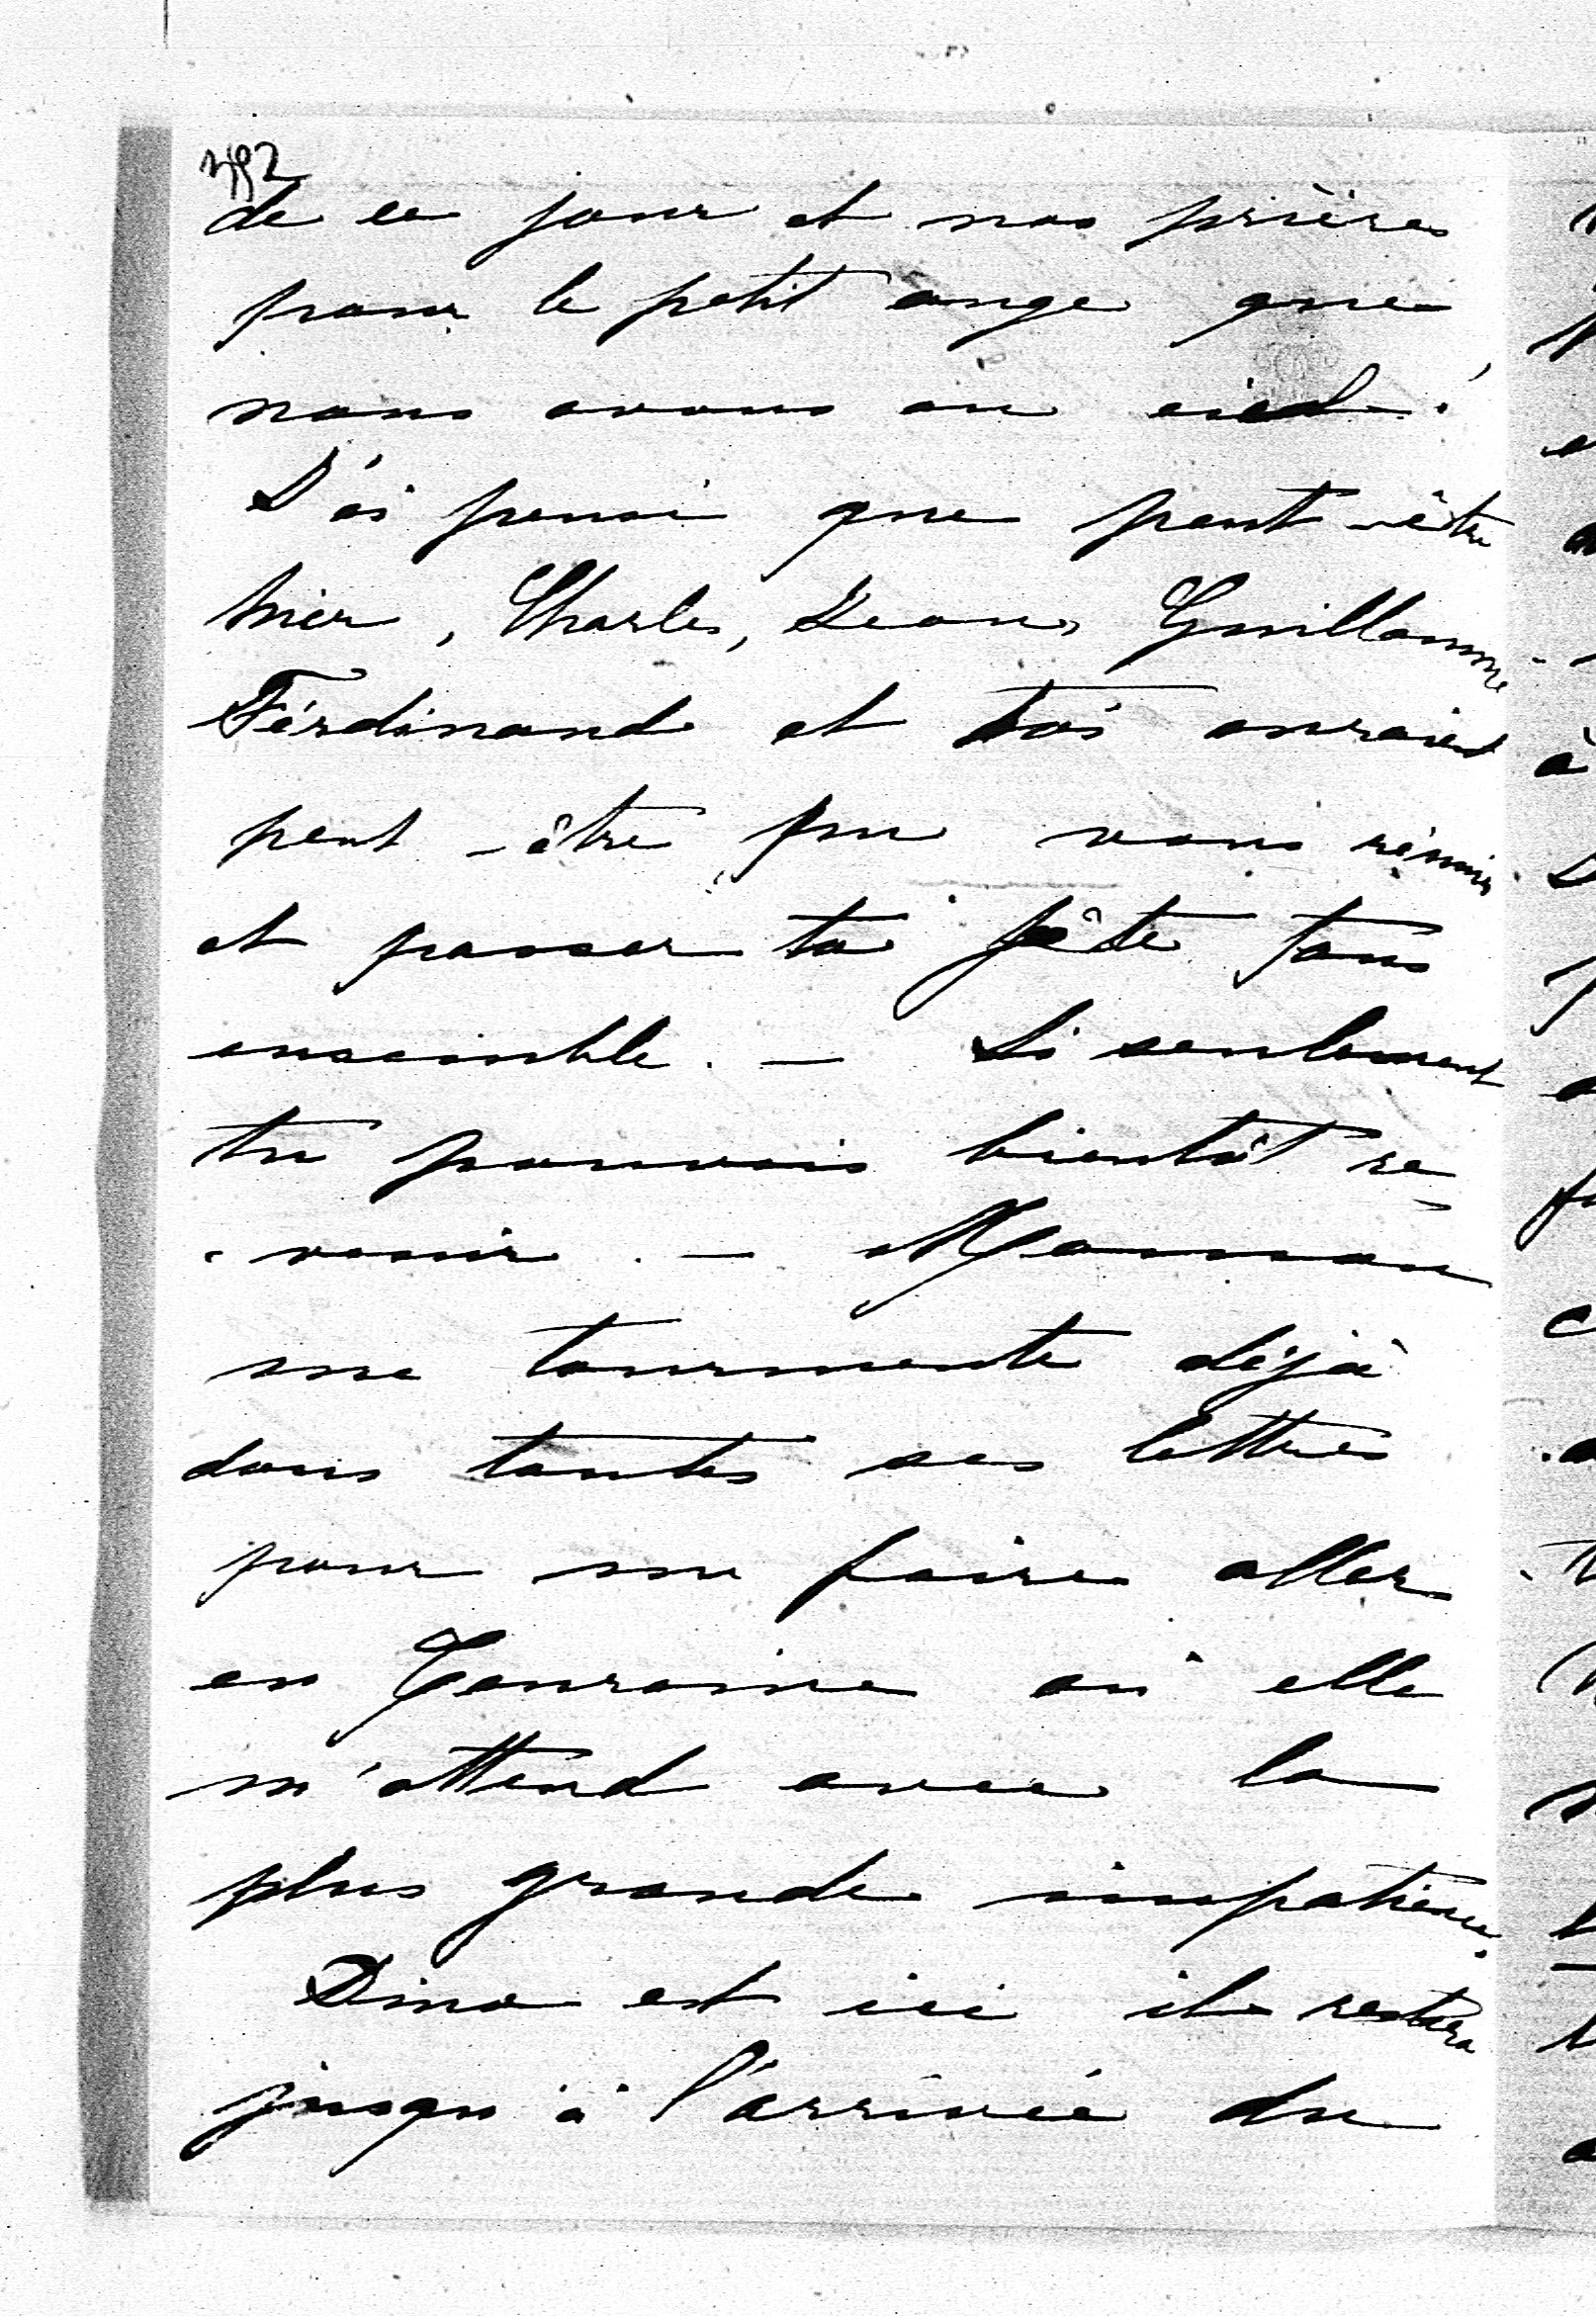 de ce jour et nos prières
pour le petit ange que
nous avons au ciel !
J'ai pensé que peut-être
hier, Charles, Jean, Guillaume
Férdinand et toi auraient
peut-être pu vous réunir
et passer ta fête tous
ensemble. — Si seulement
tu pouvais bientôt re-
-venir. — Maman
me tourmente déjà
dans toutes ses lettres
pour me faire aller
en Touraine où elle
m'attend avec la
plus grande impatience.
Dino est ici il restera
jusqu'à l'arrivée du